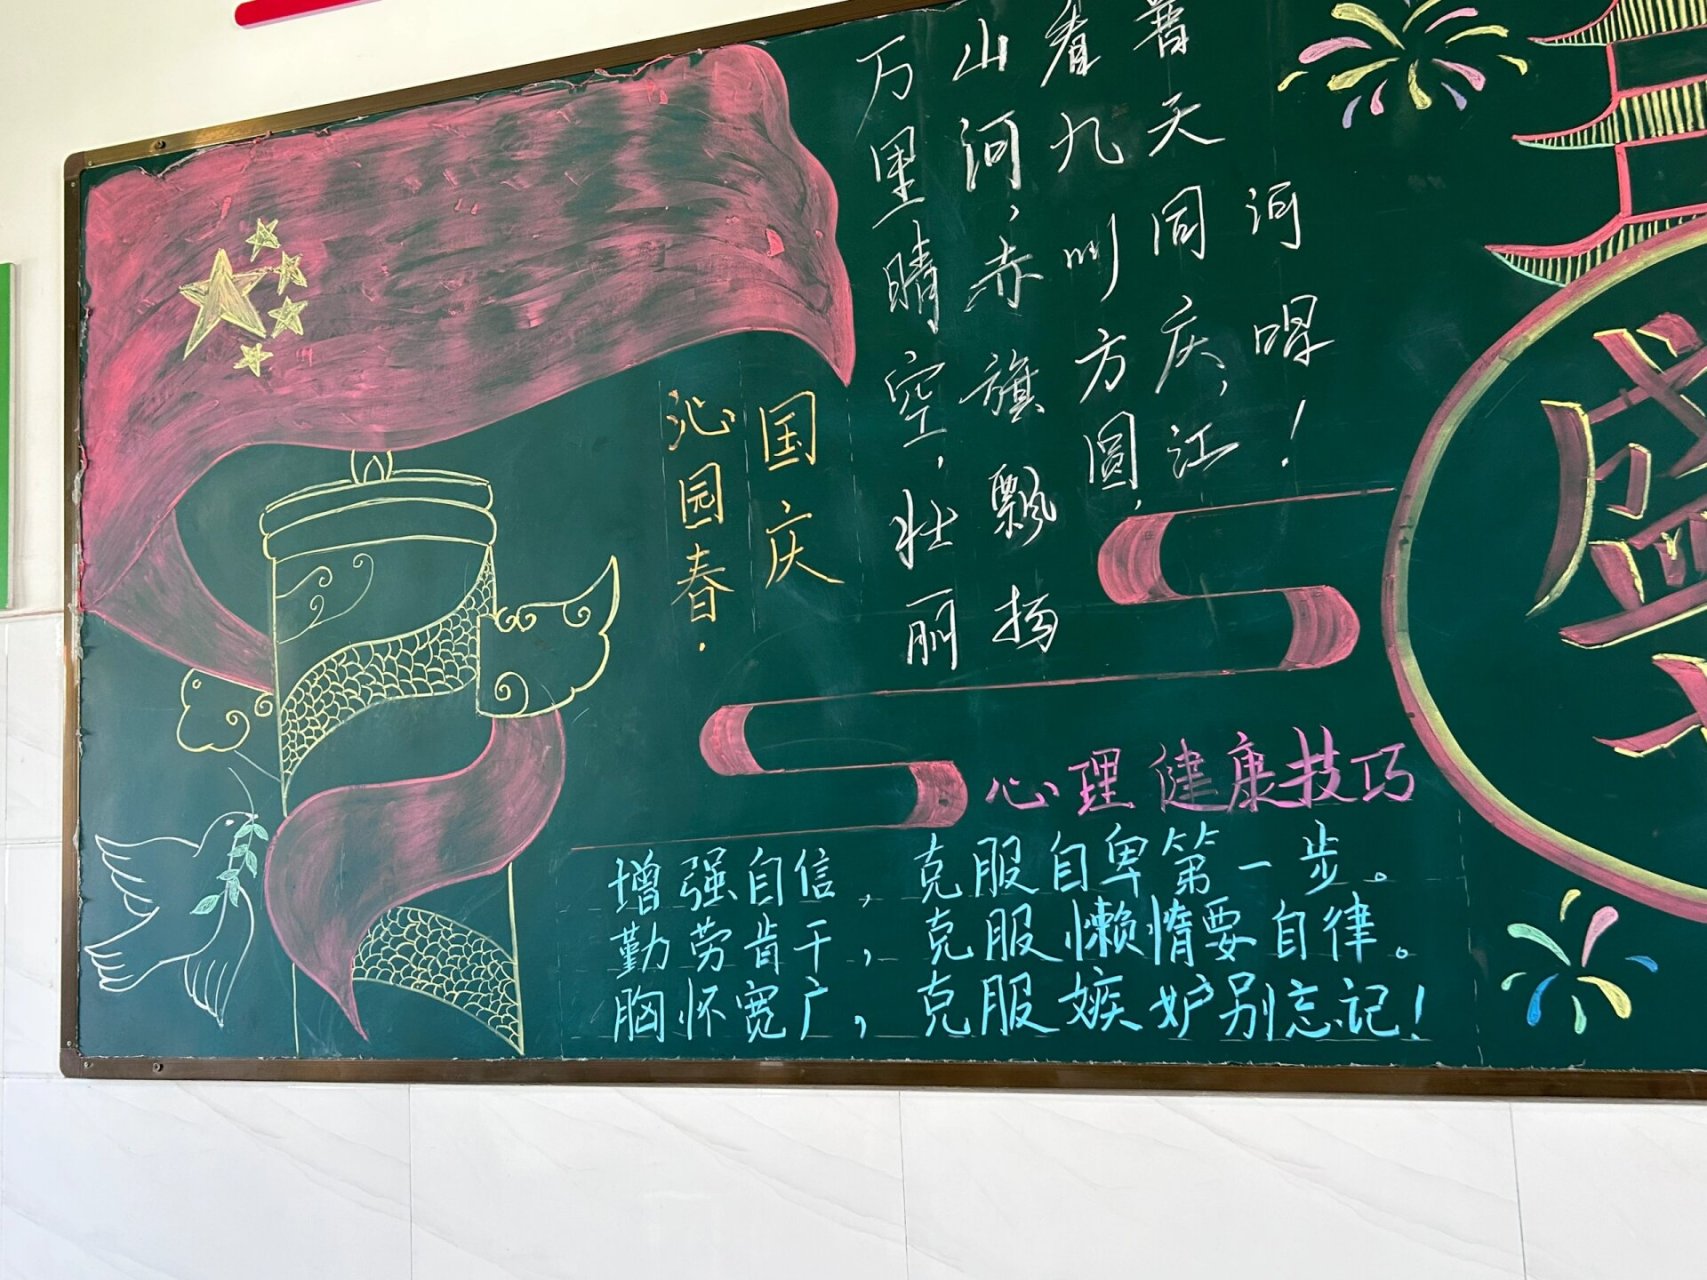 沁园春·
国庆
万里晴空，壮丽
山河，赤旗飘扬
看九州方圆，
普天同庆，江
河唱！
心理健康技巧
增强自信，克服自卑第一步。
勤劳肯干，克服懒惰要自律。
胸怀宽广，克服嫉妒别忘记！
盛